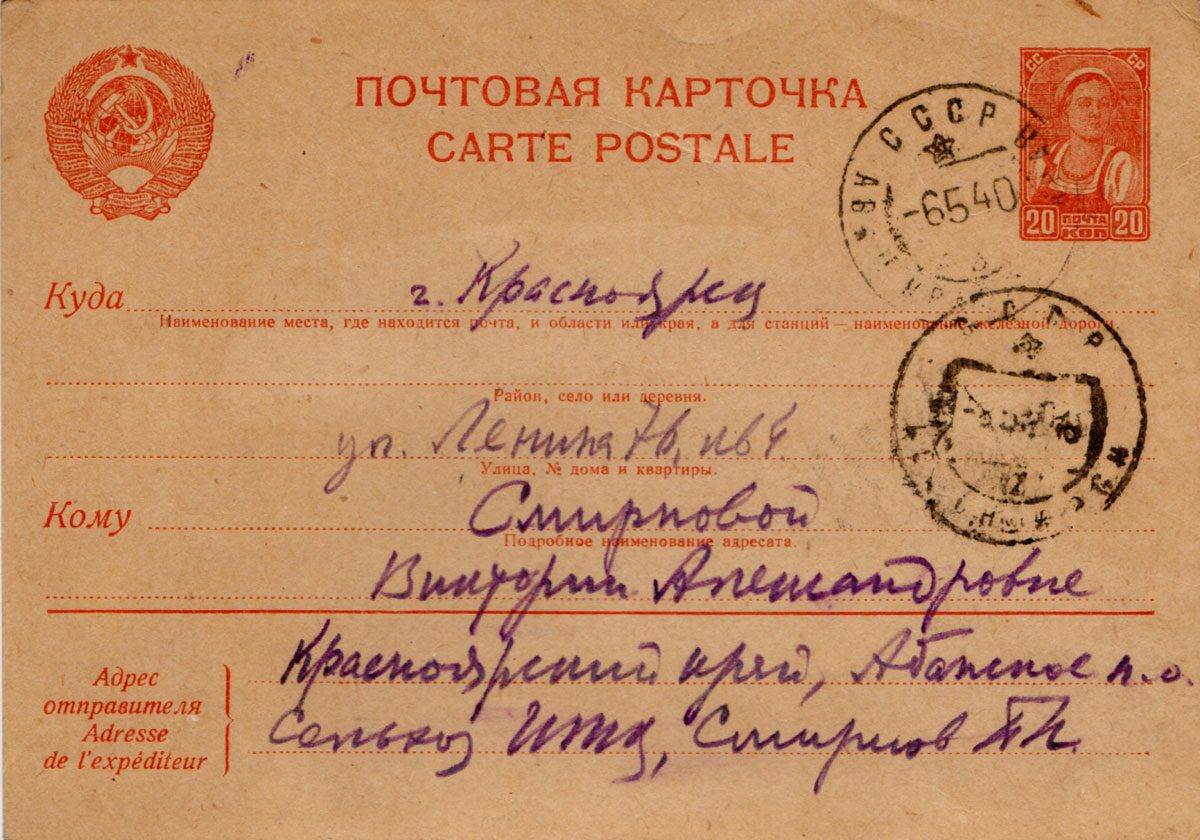 ПОЧТОВАЯ КАРТОЧКА
CARTE POSTALE
СС СР
20 ПОЧТА КОП 20
СССР
-6 5 40
Куда г. Красноярск
Наименование места, где находится почта, и области или края, а для станций — наименование железной дороги.
Район, село или деревня.
ул. Ленина 76, кв 4.
Улица, № дома и квартиры.
СССР
Кому Смирновой
Подробное наименование адресата.
Виктории Александровне
Адрес отправителя
Adresse de l'expéditeur
Красноярский край, Абанское п.о.
Сельхоз, Смирнов